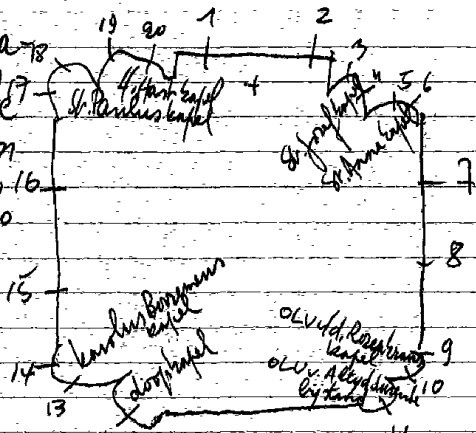 1
2
19
20
18
3
4
5
6
17
H. Hart kapel
St. Paulus kapel
St. Jozef kapel
St. Anna kapel
16
7
8
15
Karolus Borromeus
kapel
OLV v/d. Rozenkrans
kapel
9
14
doopkapel
OLV v. Altyddurende
bystand
10
13